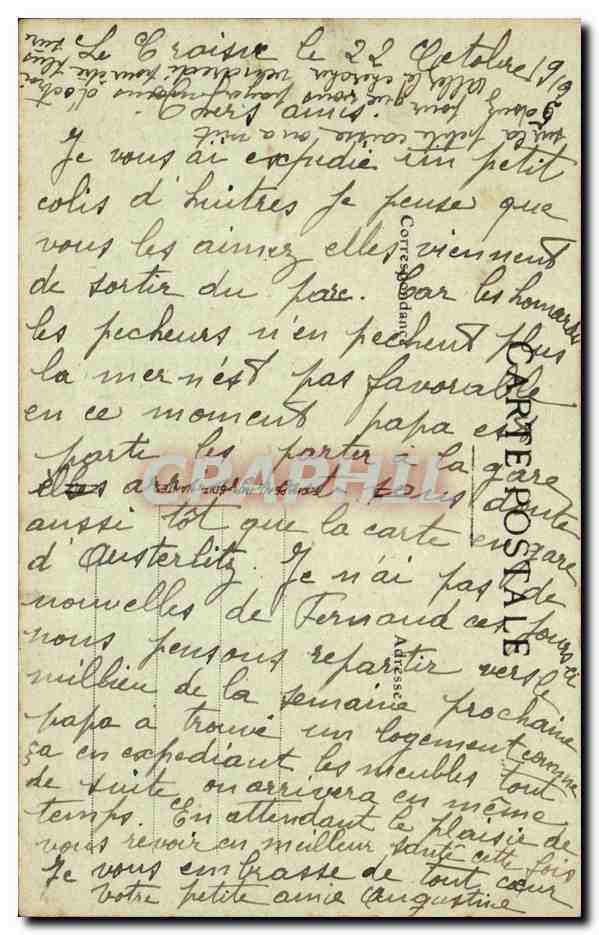 Le Croisic le 22 Octobre 1925
Chers amis.
Je vous ai expedie un petit
colis d'huitres je pense que
vous les aimez elles viennent
de sortir du parc. Car les homards
les pecheurs n'en pechent plus
la mer n'est pas favorable
en ce moment papa est
parte les porter à la gare
elles arriveront sans doute
aussi tôt que la carte en gare
d'Austerlitz. Je n'ai pas de
nouvelles de Fernand ces jours ci
nous pensons repartir vers le
millieu de la semaine prochaine
papa a trouvé un logement comme
ça en expediant les meubles tout
de suite on arrivera en même
temps. En attendant le plaisir de
vous revoir en meilleur santé cette fois
Je vous embrasse de tout cœur
Votre petite amie Augustine
sur la petite caisse on a mit
pour que vous payez d'octroi
Allez la chercher vendredi pour être plus
sure
Correspondance
CARTE POSTALE
Adresse
CPAPHIL